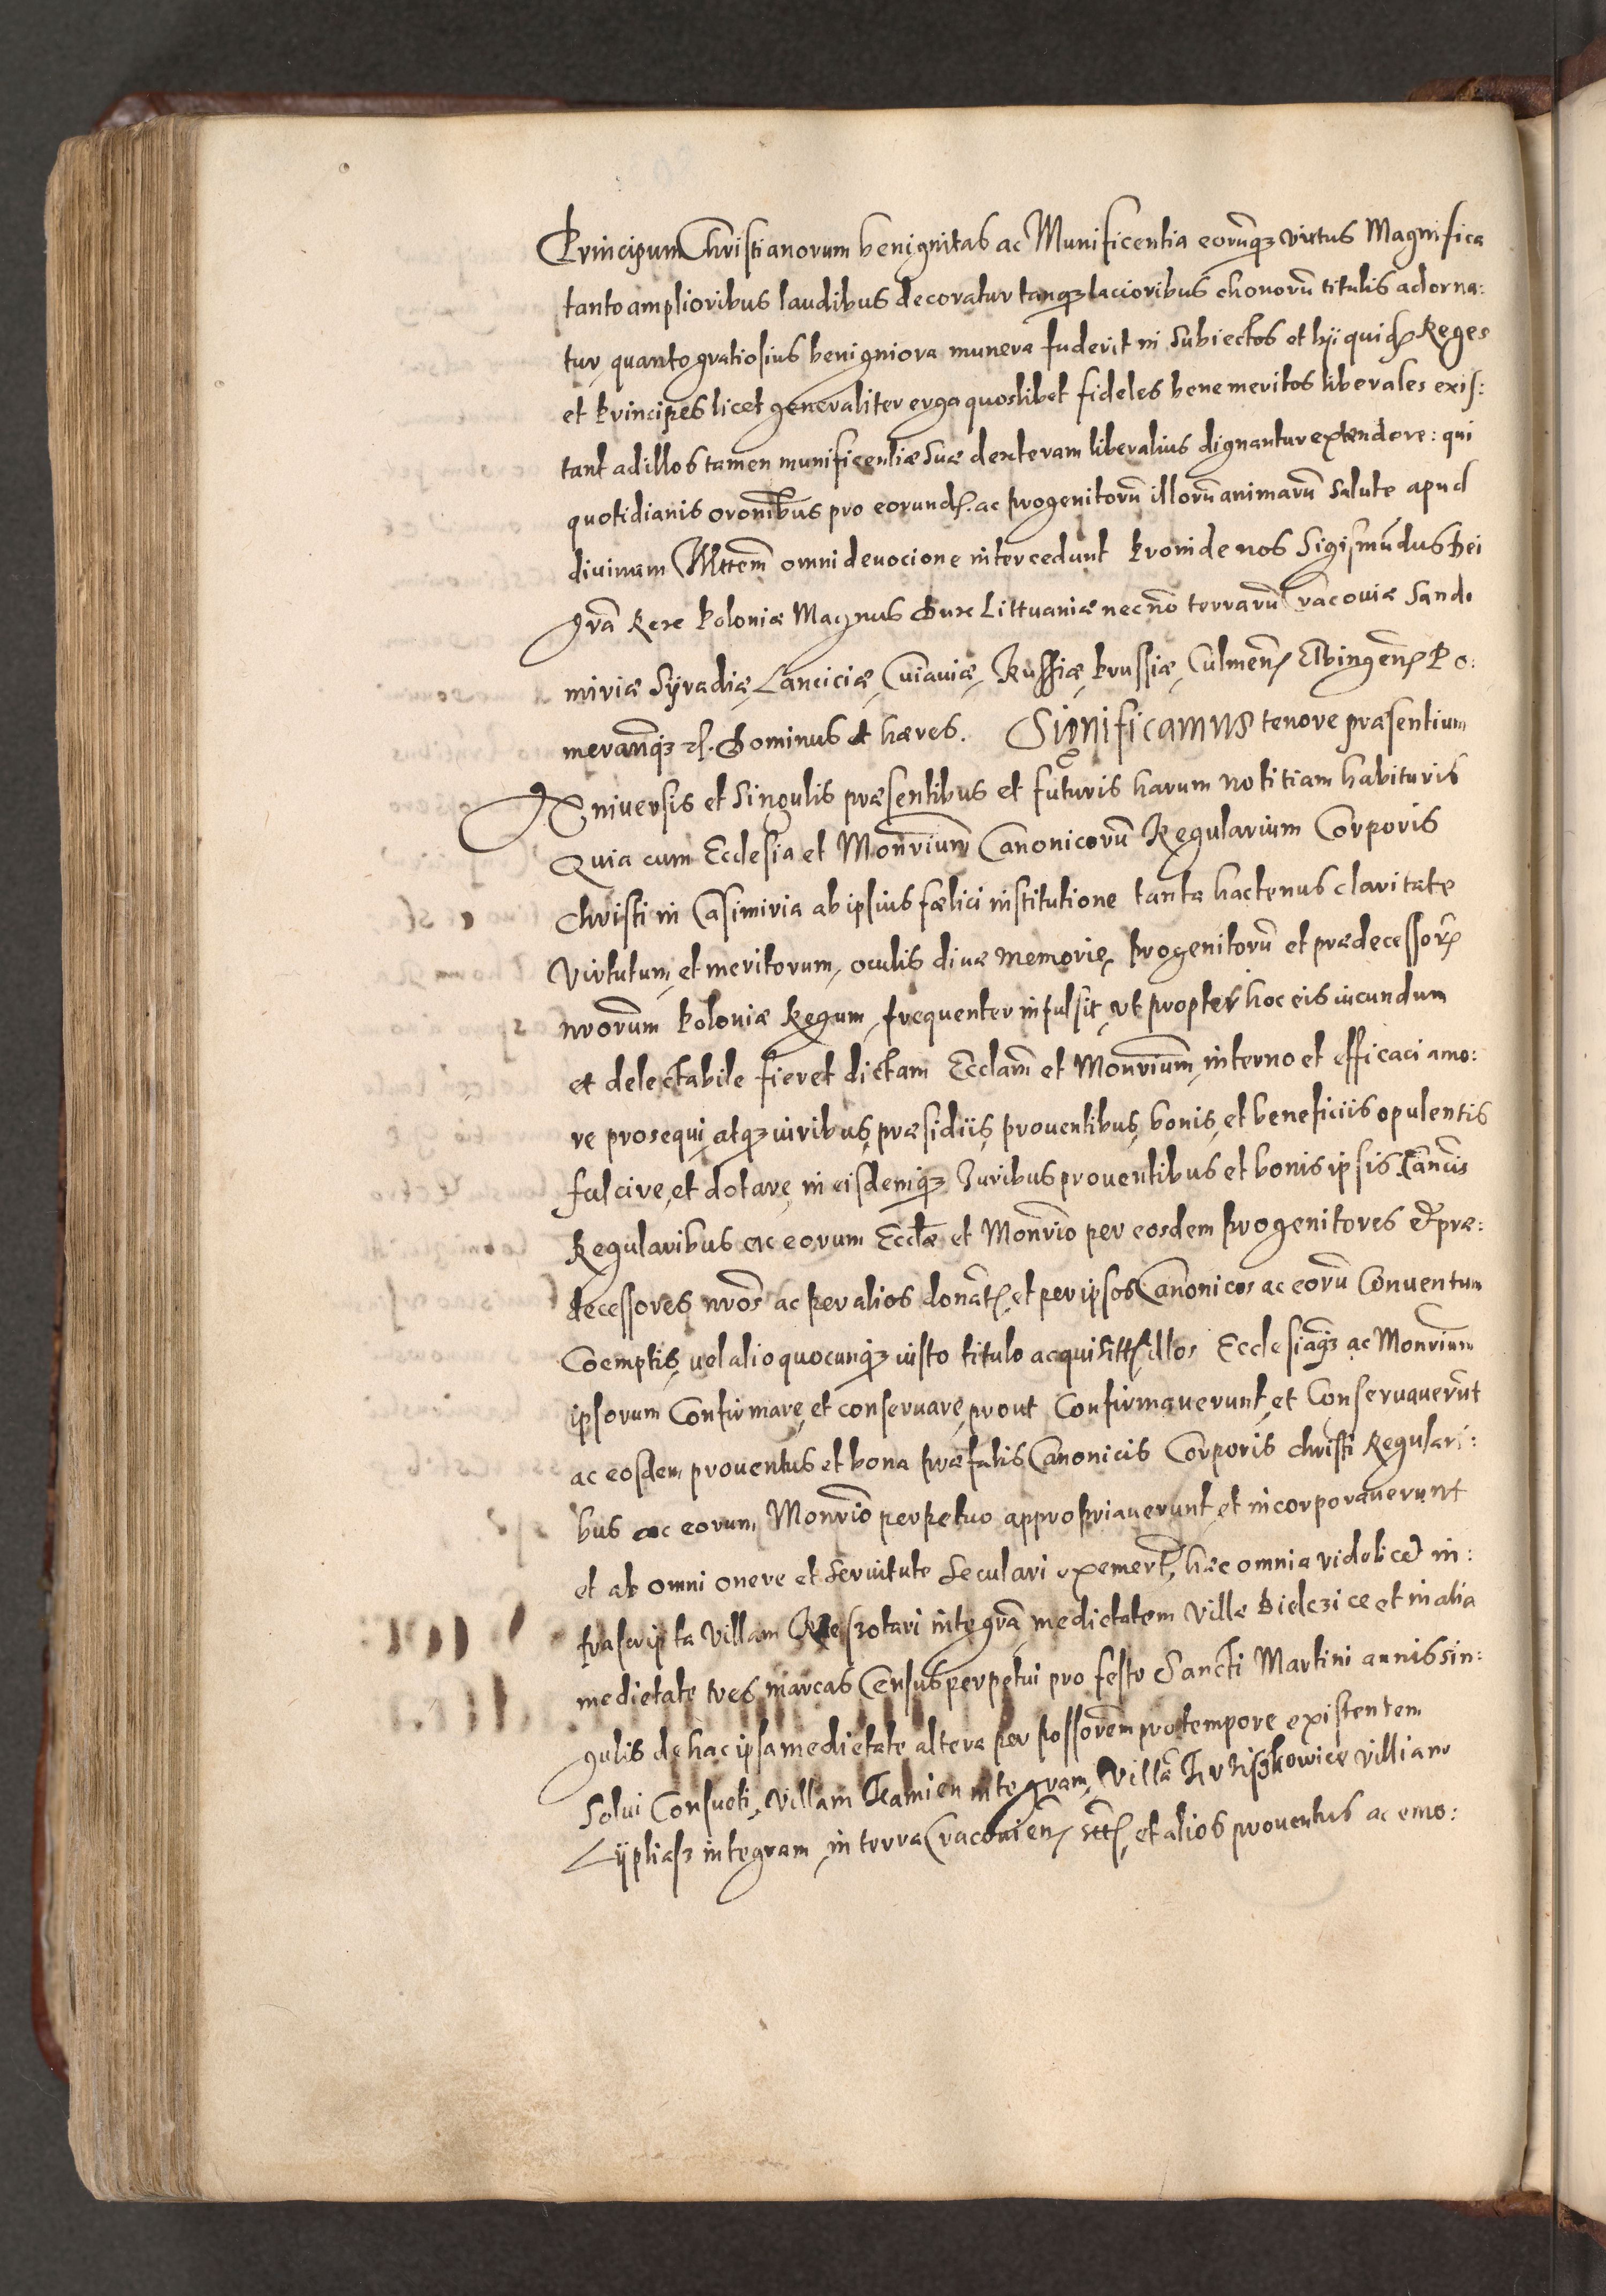 Principum Christianorum benignitas ac Munificentia eorūqȝ virtus Magnifica
tanto amplioribus laudibus decoratur tanqȝ lacioribus ehonorū titulis adorna:
tur, quanto gratiosius benigniora munera fuderit in Subiectos et hÿ quidē Reges
et Principes licet generaliter erga quoslibet fideles bene meritos liberales exis:
tant ad illos tamen munificentiæ suæ dexteram liberalius dignantur extendere: qui
quotidianis orōnibus pro eorundē. ac progenitorū illorū animarū salute apud
diuinam Mttem omni deuocione intercedunt Proinde nos Sigismūdus Dei
grā Rex Poloniæ Magnus Dux Littuaniæ necnō terrarū Cracoviæ Sando
miriæ Syradiæ, Lanciciæ, Cuiaviæ, Russiæ, Prussiæ, Culmeñ Elbingeñ Po:
meranīqȝ et. Dominus et hæres. Significamus tenore præsentium
Vniversis et Singulis præsentibus et futuris harum notitiam habituris
Quia cum Ecclesia et Monrium Canonicorū Regularium Corporis
Christi in Casimiria ab ipsius fælici institutione tanta hactenus claritate
virtutum, et meritorum, oculis diuæ memorię, progenitorū et prædecessorū
nrorum Poloniæ Regum, frequenter infulsit, vt propter hoc eis iucundum
et delectabile fieret dictam Ecclam et Monrium, interno et efficaci amo:
re prosequi, atqȝ iuribus, præsidiis, prouentibus, bonis, et beneficiis opulentis
fulcire, et dotare, in eisdemqȝ Iuribus prouentibus et bonis ipsis Cancis
Regularibus ac eorum Ecclæ et Monrio per eosdem progenitores et præ:
decessores nros ac per alios donat, et per ipsos Canonicos ac eorū Conventum
Coemptis, vel alio quocunqȝ iusto titulo acquisitt, illos Ecclesiaqȝ ac Monrium
ipsorum Confirmare, et conseruare, prout Confirmaverunt, et Conseruauerūt
ac eosdem prouentus et bona præfatis Canonicis Corporis christi Regulari:
bus ac eorum Monrio perpetuo appropriaverunt, et incorporaverunt
et ab omni onere et servitute Seculari exemert, hæc omnia videlicet in:
frascripta Villam integrā medietatem Villæ Bielczice et in alia
medietate tres marcas Census perpetui pro festo Sancti Martini annis sin:
gulis de hac ipsa medietate altera per possorem pro tempore existentem
Solui Consueti, Villam Kamien integram, Villā Villiam
Lÿpliasz integram, in terra Cracovieñ, et alios prouentus ac emo: